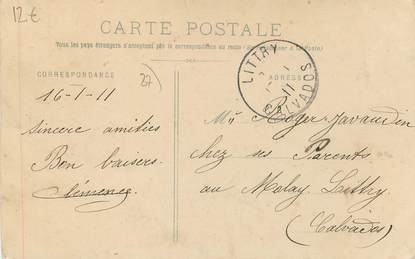 12€
CARTE POSTALE
Tous les pays étrangers n'acceptent pas la correspondance au recto (Se renseigner à la Poste)
CORRESPONDANCE
27
ADRESSE
LITTRY
CALVADOS
11
16-1-11
Sincère amitiés
Bon baisers.
Clémence
Mlle Roger Javaudin
chez ses Parents
au Molay Littry
(Calvados)